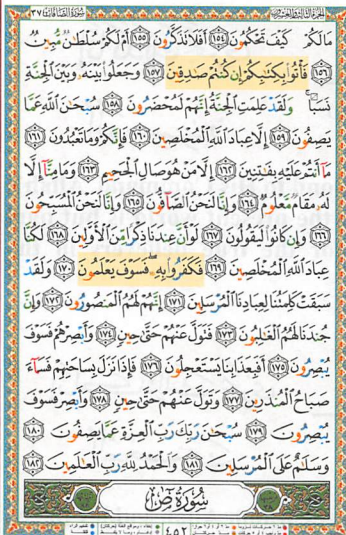 سورة الصافات ٣٧
مالكم كيف تحكمون ١٥٤ أفلا تذكرون ١٥٥ أم لكم سلطان مبين
١٥٦ فأتوا بكتابكم إن كنتم صادقين ١٥٧ وجعلوا بينه وبين الجنة
نسبا ولقد علمت الجنة إنهم لمحضرون ١٥٨ سبحان الله عما
يصفون ١٥٩ إلا عباد الله المخلصين ١٦٠ فإنكم وما تعبدون ١٦١
ما أنتم عليه بفاتنين ١٦٢ إلا من هو صال الجحيم ١٦٣ وما منا إلا
له مقام معلوم ١٦٤ وإنا لنحن الصافون ١٦٥ وإنا لنحن المسبحون
١٦٦ وإن كانوا ليقولون ١٦٧ لو أن عندنا ذكرا من الأولين ١٦٨ لكنا
عباد الله المخلصين ١٦٩ فكفروا به فسوف يعلمون ١٧٠ ولقد
سبقت كلمتنا لعبادنا المرسلين ١٧١ إنهم لهم المنصورون ١٧٢ وإن
جندنا لهم الغالبون ١٧٣ فتول عنهم حتى حين ١٧٤ وأبصرهم فسوف
يبصرون ١٧٥ أفبعذابنا يستعجلون ١٧٦ فإذا نزل بساحتهم فساء
صباح المنذرين ١٧٧ وتول عنهم حتى حين ١٧٨ وأبصر فسوف
يبصرون ١٧٩ سبحان ربك رب العزة عما يصفون ١٨٠
وسلام على المرسلين ١٨١ والحمد لله رب العالمين ١٨٢
سورة ص
٤٥٢